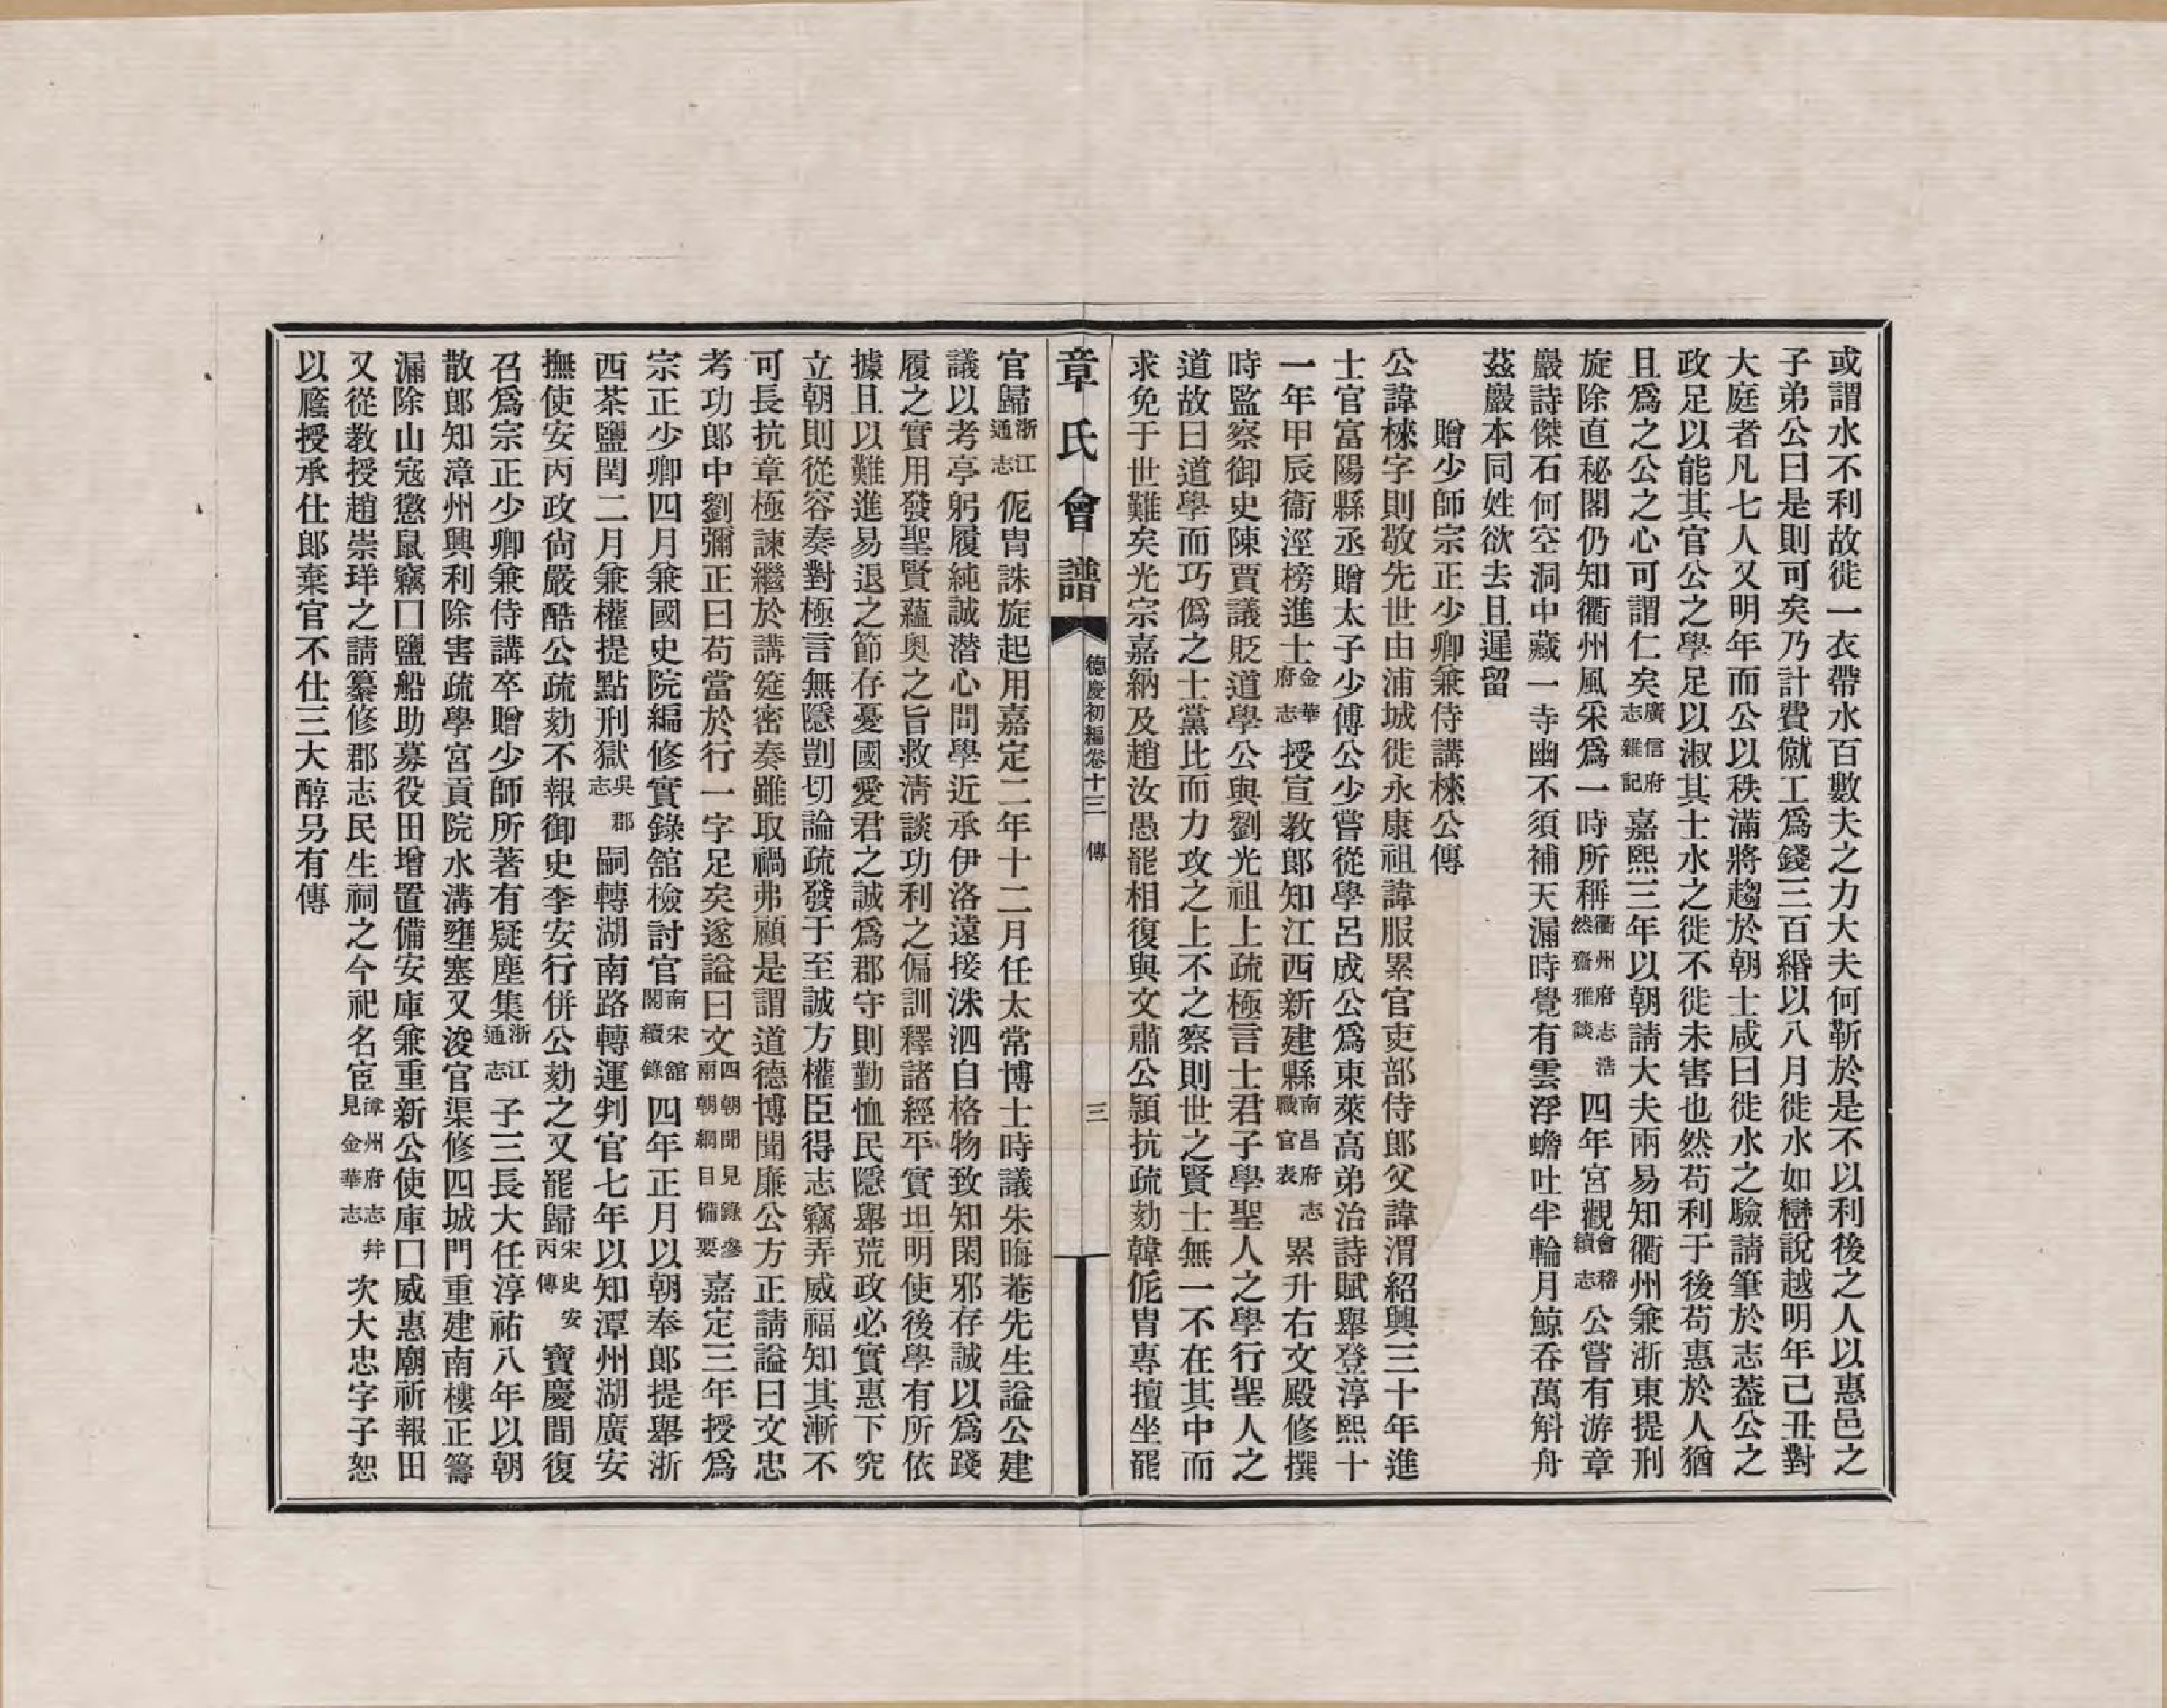 或謂水不利故徙一衣帶水百數夫之力大夫何靳於是不以利後之人以惠邑之
子弟公曰是則可矣乃計費僦工爲錢三百緡以八月徙水如巒說越明年己丑對
大庭者凡七人又明年而公以秩滿將趨於朝士咸曰徙水之驗請筆於志葢公之
政足以能其官公之學足以淑其士水之徙不徙未害也然苟利于後苟惠於人猶
且爲之公之心可謂仁矣廣信府志雜記嘉熙三年以朝請大夫兩易知衢州兼浙東提刑
旋除直秘閣仍知衢州風采爲一時所稱衢州府志浩然齋雅談四年宮觀會稽續志公嘗有游章
巖詩傑石何空洞中藏一寺幽不須補天漏時覺有雲浮蟾吐半輪月鯨吞萬斛舟
茲巖本同姓欲去且遲留
贈少師宗正少卿兼侍講楝公傳
公諱楝字則敬先世由浦城徙永康祖諱服累官吏部侍郎父諱渭紹興三十年進
士官富陽縣丞贈太子少傅公少嘗從學呂成公爲東萊高弟治詩賦舉登淳熙十
一年甲辰衞涇榜進士金華府志授宣教郎知江西新建縣南昌府志職官表累升右文殿修撰
時監察御史陳賈議貶道學公與劉光祖上疏極言士君子學聖人之學行聖人之
道故曰道學而巧僞之士黨比而力攻之上不之察則世之賢士無一不在其中而
求免于世難矣光宗嘉納及趙汝愚罷相復與文肅公穎抗疏劾韓侂胄專擅坐罷
章氏會譜
德慶初編卷十三 傳
三
官歸浙江通志侂胄誅旋起用嘉定二年十二月任太常博士時議朱晦菴先生謚公建
議以考亭躬履純誠潜心問學近承伊洛遠接洙泗自格物致知閑邪存誠以爲踐
履之實用發聖賢蘊奧之旨救清談功利之偏訓釋諸經平實坦明使後學有所依
據且以難進易退之節存憂國愛君之誠爲郡守則勤恤民隱舉荒政必實惠下究
立朝則從容奏對極言無隱剴切論疏發于至誠方權臣得志竊弄威福知其漸不
可長抗章極諫繼於講筵密奏雖取禍弗顧是謂道德博聞廉公方正請謚曰文忠
考功郎中劉彌正曰苟當於行一字足矣遂謚曰文四朝聞見錄參兩朝綱目備要嘉定三年授爲
宗正少卿四月兼國史院編修實錄舘檢討官南宋舘閣續錄四年正月以朝奉郎提舉浙
西茶鹽閏二月兼權提點刑獄吳郡志嗣轉湖南路轉運判官七年以知潭州湖廣安
撫使安丙政尙嚴酷公疏劾不報御史李安行併公劾之又罷歸宋史安丙傳寶慶間復
召爲宗正少卿兼侍講卒贈少師所著有疑塵集浙江通志子三長大任淳祐八年以朝
散郎知漳州興利除害疏學宮貢院水溝壅塞又浚官渠修四城門重建南樓正籌
漏除山寇懲鼠竊囗鹽船助募役田增置備安庫兼重新公使庫囗威惠廟祈報田
又從教授趙崇玤之請纂修郡志民生祠之今祀名宦漳州府志幷見金華志次大忠字子恕
以廕授承仕郎棄官不仕三大醇另有傳